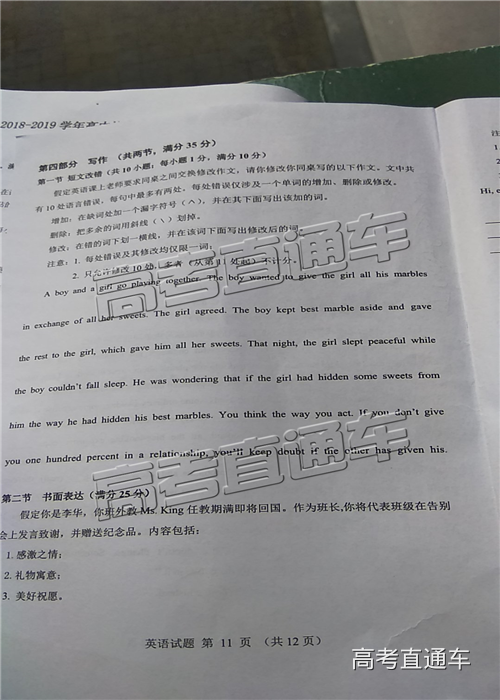 2018-2019 学年高
第四部分 写作 (共两节，满分 35 分)
第一节 短文改错 (共 10 小题；每小题 1 分，满分 10 分)
假定英语课上老师要求同桌之间交换修改作文，请你修改你同桌写的以下作文。文中共
有 10 处语言错误，每句中最多有两处。每处错误仅涉及一个单词的增加、删除或修改。
增加：在缺词处加一个漏字符号（∧），并在其下面写出该加的词。
删除：把多余的词用斜线（\）划掉。
修改：在错的词下划一横线，并在该词下面写出修改后的词。
注意：1. 每处错误及其修改均仅限一词；
2. 只允许修改 10 处，多者（从第 11 处起）不计分。
A boy and a girl go playing together. The boy wanted to give the girl all his marbles
in exchange of all her sweets. The girl agreed. The boy kept best marble aside and gave
the rest to the girl, which gave him all her sweets. That night, the girl slept peaceful while
the boy couldn't fall sleep. He was wondering that if the girl had hidden some sweets from
him the way he had hidden his best marbles. You think the way you act. If you don't give
you one hundred percent in a relationship, you'll keep doubt if the other has given his.
第二节 书面表达（满分 25 分）
假定你是李华，你班外教 Ms. King 任教期满即将回国。作为班长,你将代表班级在告别
会上发言致谢，并赠送纪念品。内容包括:
1. 感激之情;
2. 礼物寓意;
3. 美好祝愿。
英语试题 第 11 页 （共 12 页）
注
Hi, e
高考直通车
高考直通车
高考直通车